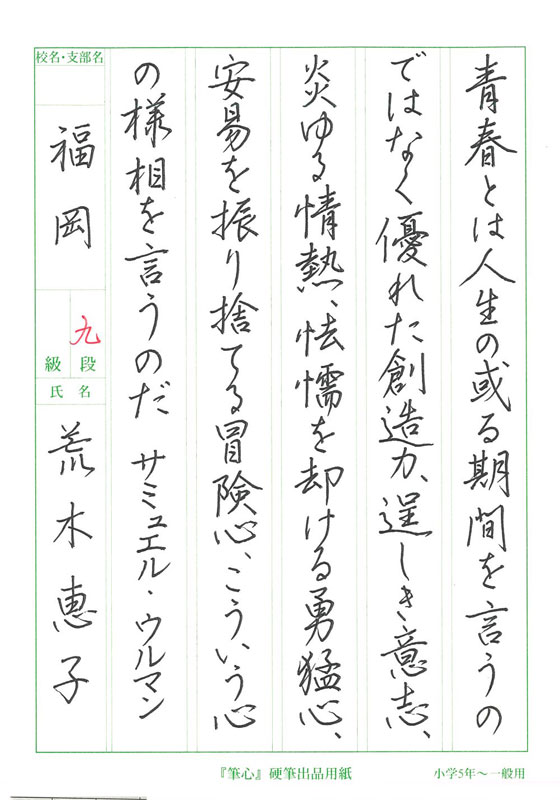 青春とは人生の或る期間を言うの
ではなく優れた創造力、逞しき意志、
炎ゆる情熱、怯懦を却ける勇猛心、
安易を振り捨てる冒険心、こういう心
の様相を言うのだ　サミュエル・ウルマン
校名・支部名
福岡
九
級段
氏名
荒木恵子
『筆心』硬筆出品用紙
小学5年〜一般用